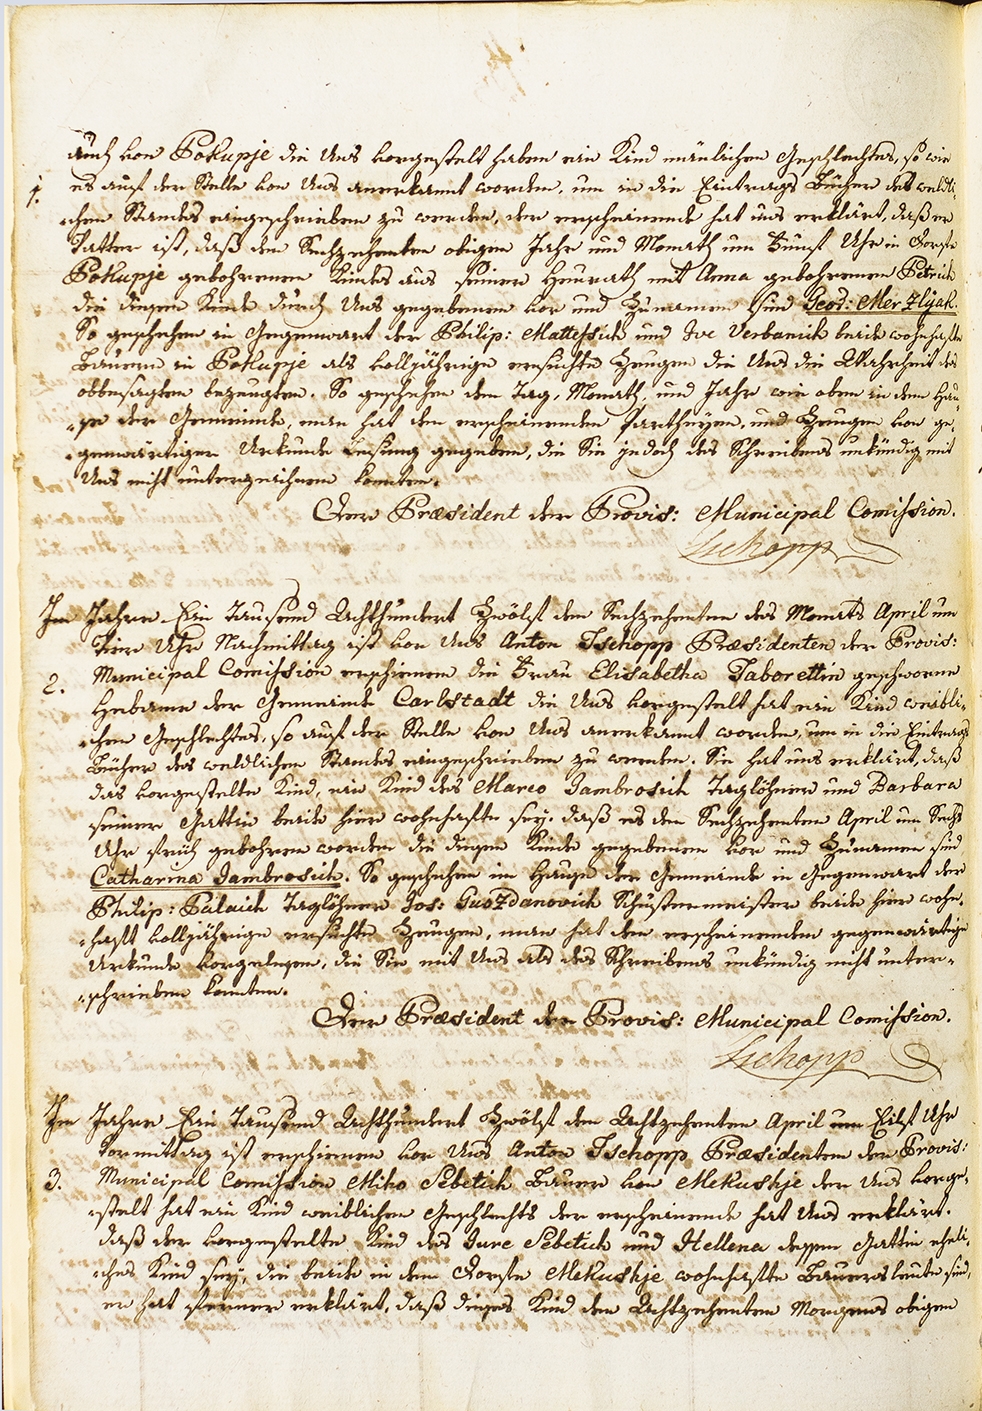 auch von Pokupje die Uns vorgestelt haben ein Kind mänlichen Geschlechtes, so wie
1. es auf der Stelle von Uns anerkannt worden, um in die Eintrags Bücher des weldli-
-chen Standes eingeschrieben zu werden, der erscheinende hat uns erklärt, daß er
Vatter ist, daß den Sechzehenten obigen Jahr und Monath um Fünf Uhr in Dorfe
Pokupje gebohrenen Kindes aus seiner Heurath mit Anna gebohrenen Petrich
die diesen Kinde durch Uns gegebenen vor und Zunamen sind Geor: Merzlyak.
So geschehen in Gegenwart der Philip: Mattessich und Ive Verbanich beide wohnhafte
Bauern in Pokupje als volljährige ersuchte Zeugen die Uns die Wahrheit des
obbesagten bezeugten. So geschehen den Tag, Monath, und Jahr wie oben in dem Hau-
-se der Gemeinde, man hat den erscheinenden Partheyen, und Zeugen von ge-
-genwärtiger Urkunde Lesung gegeben, die Sie jedoch des Schreibens unkündig mit
Uns nicht unterzeichnen konnten.
Der Præsident der Provis: Municipal Comission.
Tschopp
Im Jahre Ein Tausend Achthundert Zwölf den Sechzehenten des Monats April um
Vier Uhr Nachmittag ist vor Uns Anton Tschopp Præsidenten der Provis:
2. Municipal Comission erschienen die Frau Elisabetha Taborettin geschworne
Hebame der Gemeinde Carlstadt die Uns vorgestelt hat ein Kind weibli-
-chen Geschlechtes, so auf der Stelle von Uns anerkannt worden, um in die Eintrags
Bücher des weldlichen Standes eingeschrieben zu werden. Sie hat uns erklärt, daß
das vorgestelte Kind, ein Kind des Marco Jambrosich Taglöhner und Barbara
seiner Gattin beide hier wohnhafte sey. daß es den Sechzehenten April um Sechs
Uhr früh gebohren worden die diesen Kinde gegebenen vor und Zunamen sind
Catharina Jambrosich. So geschehen im Hause der Gemeinde in Gegenwart der
Philip: Palaich Taglöhner Jos: Guozdanovich Schustermeister beide hier wohn-
-haft volljährige ersuchte Zeugen, man hat den erscheinenden gegenwärtige
Urkunde vorgelesen, die Sie mit Uns als des Schreibens unkündig nicht unter-
-schrieben konnten.
Der Præsident der Provis: Municipal Comission.
Tschopp
Im Jahre Ein Tausend Achthundert Zwölf den Achtzehenten April um Eilf Uhr
Vormittag ist erschienen vor Uns Anton Tschopp Præsidenten der Provis:
3. Municipal Comission Miho Sebetich Bauer von Mekushje der Uns vorge-
-stelt hat ein Kind weiblichen Geschlechts der erscheinende hat Uns erklärt.
daß der vorgestelte Kind des Jure Sebetich und Hellena dessen Gattin eheli-
-ches Kind sey, die beide in dem Dorfe Mekushje wohnhafte Bauersleute sind,
er hat ferner erklärt, daß dieses Kind den Achtzehenten Morgens obigen